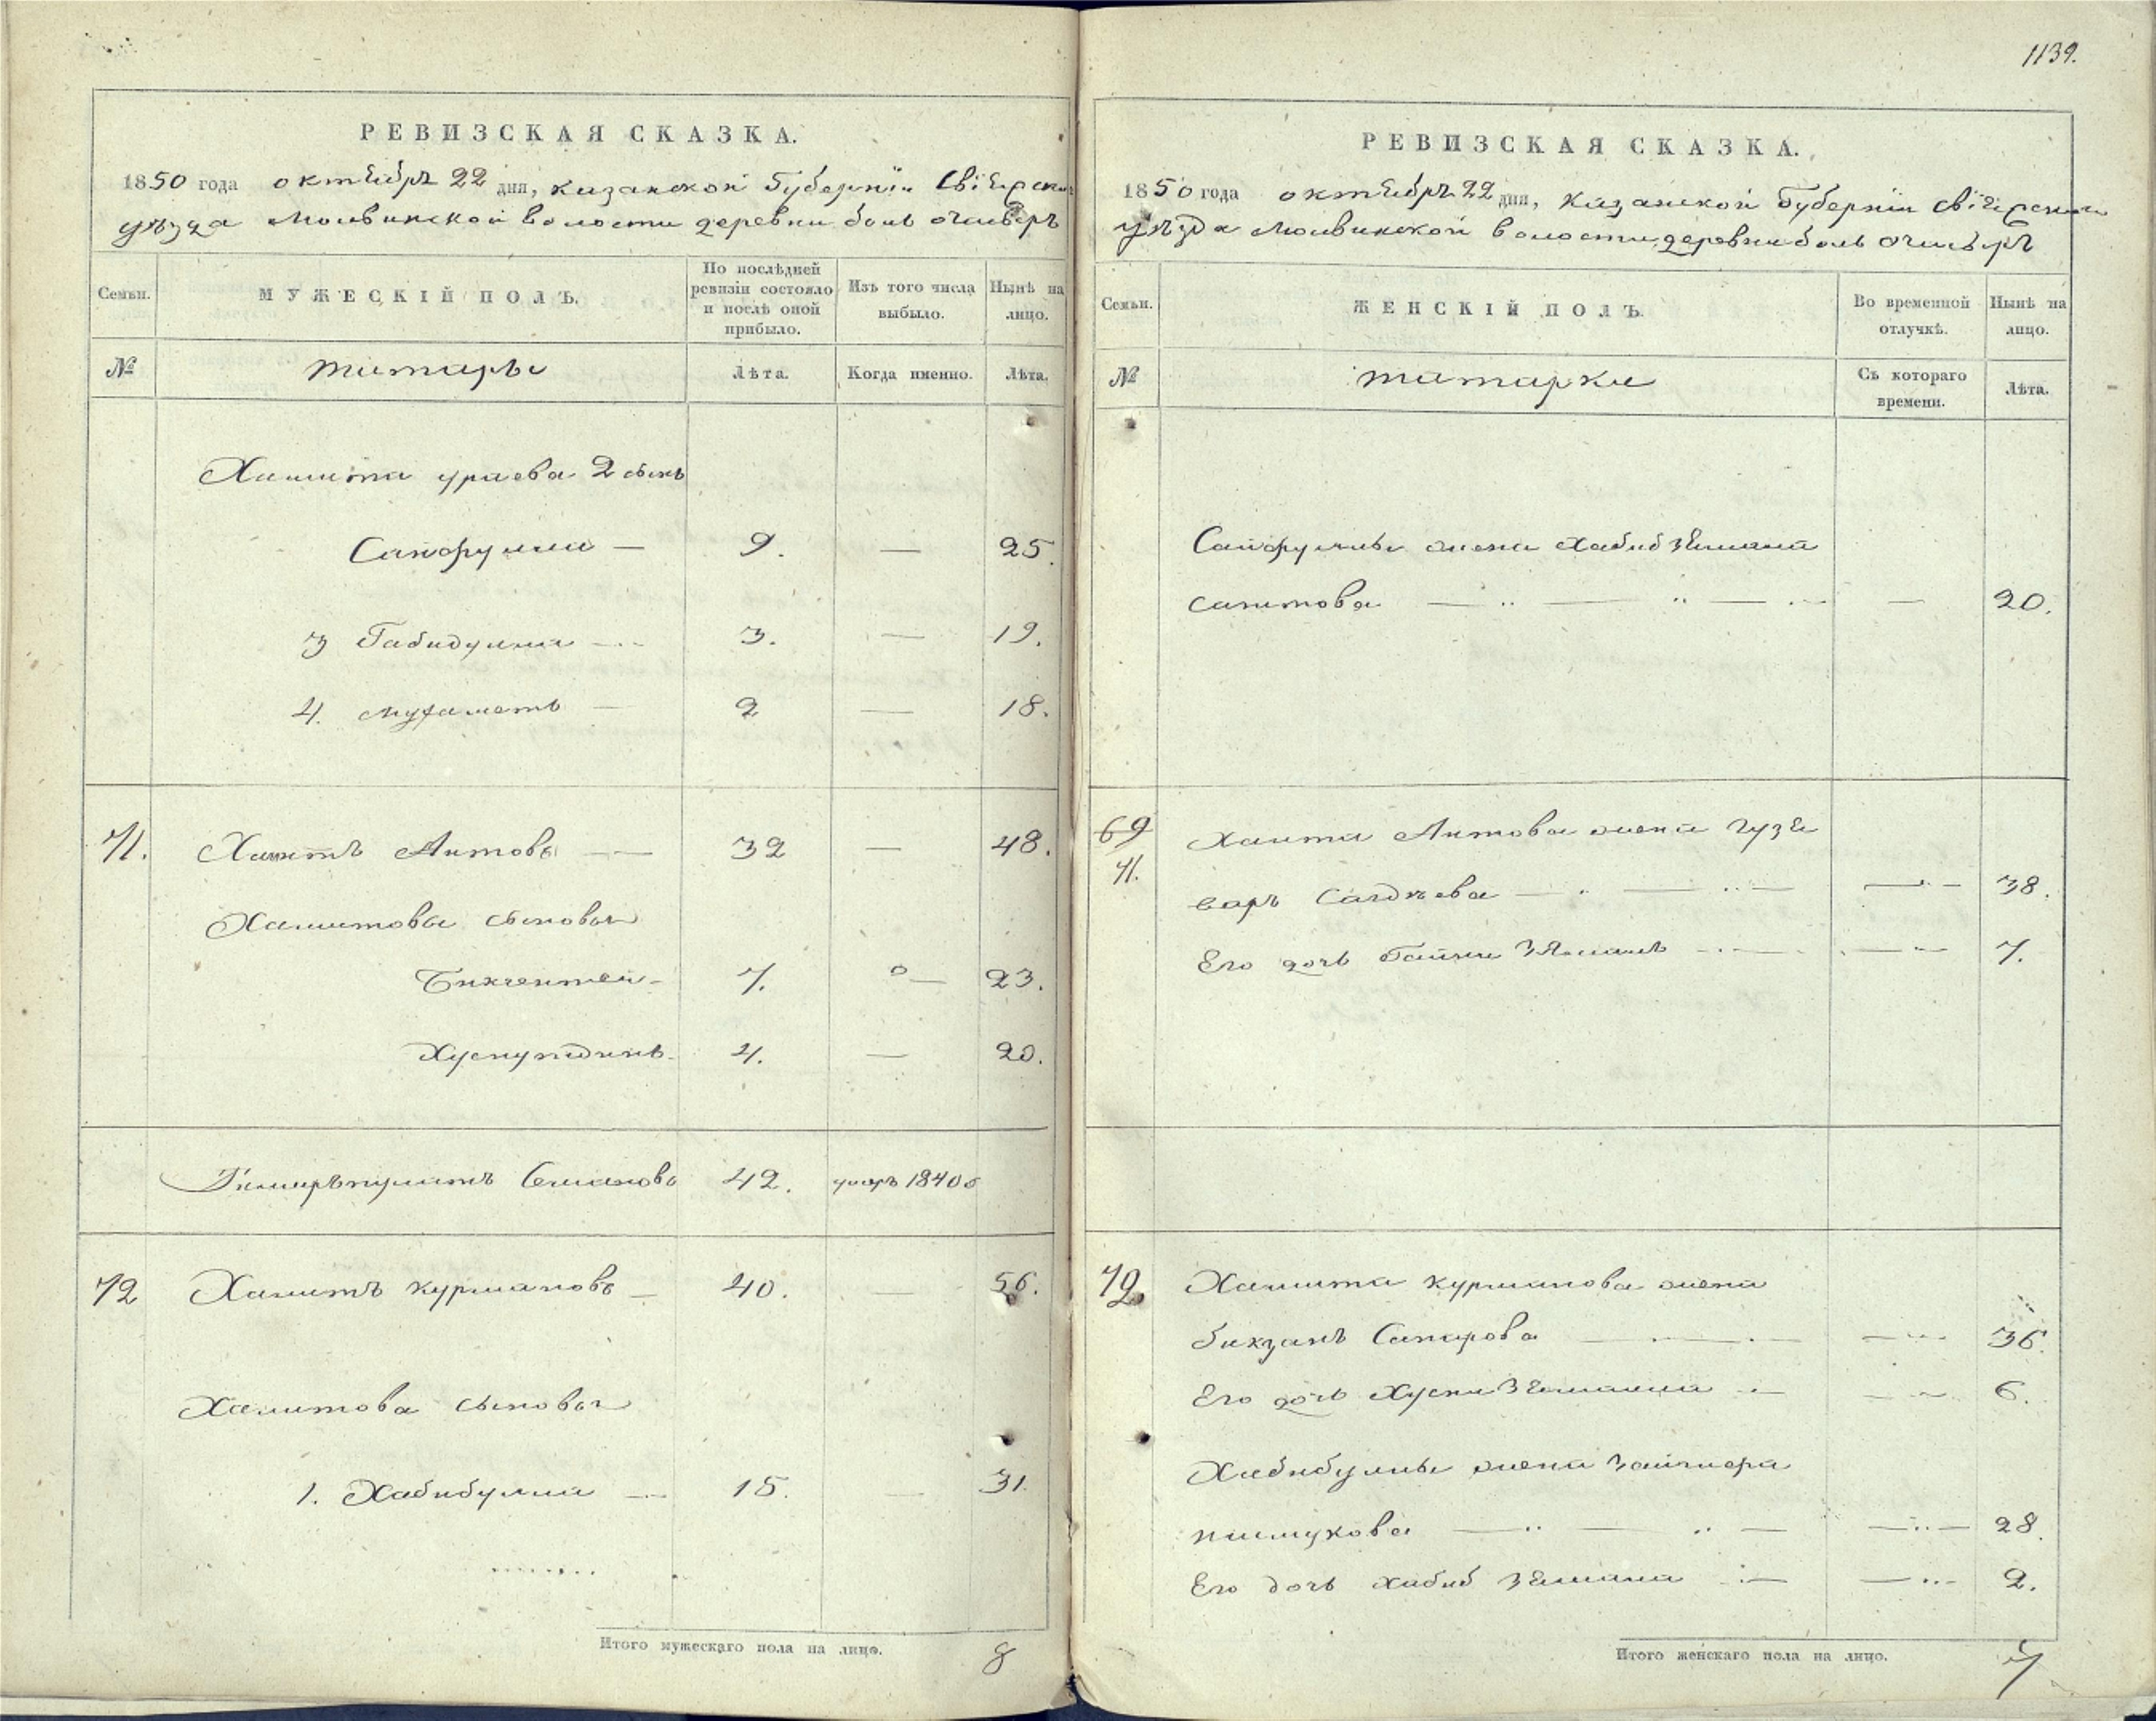 РЕВИЗСКАЯ СКАЗКА.
1850 года октября 22 дня, казанской Губернїи Свїяжскаго
уѣзда Молвинской волости деревни боль очисыръ
Семьи.
МУЖЕСКІЙ ПОЛЪ.
По послѣдней ревизіи состояло и послѣ оной прибыло.
Изъ того числа выбыло.
Нынѣ на лицо.
№
татары
Лѣта.
Когда именно.
Лѣта.
Хамита ураева 2 сынъ
Сайфулла — 9. — 25.
3 Габидулла 3. — 19.
4. мухаметъ — 2 — 18.
71. Хамитъ Аитовъ — 32 — 48.
Хамитовы сыновья
Бикчентей - 7. — 23.
Хуснутдинъ - 4. — 20.
42. умеръ 1840
72 Хамитъ курмановъ — 40. — 56.
Хамитова сыновья
1. Хабибулла — 15. — 31.
Итого мужескаго пола на лицо. 8
1139.
РЕВИЗСКАЯ СКАЗКА.
1850 года октября 22 дня, казанской Губернїи Свїяжскаго
уѣзда Молвинской волости деревни боль очисыръ
Семьи.
ЖЕНСКІЙ ПОЛЪ.
Во временной отлучкѣ.
Нынѣ на лицо.
№
татарки
Съ котораго времени.
Лѣта.
Сайфуллы жена Хабибземала
саитова — — — 20.
69 хамита Аитова жена гузе
71. варъ Сагдѣева — — 38.
Его дочь — 7.
72. Хамита курманова жена
бикзанъ Сапарова — — 36.
Его дочь — 6.
Хабибуллы жена
— — 28.
Его дочь хабиб земала — — 2.
Итого женскаго пола на лицо. 7